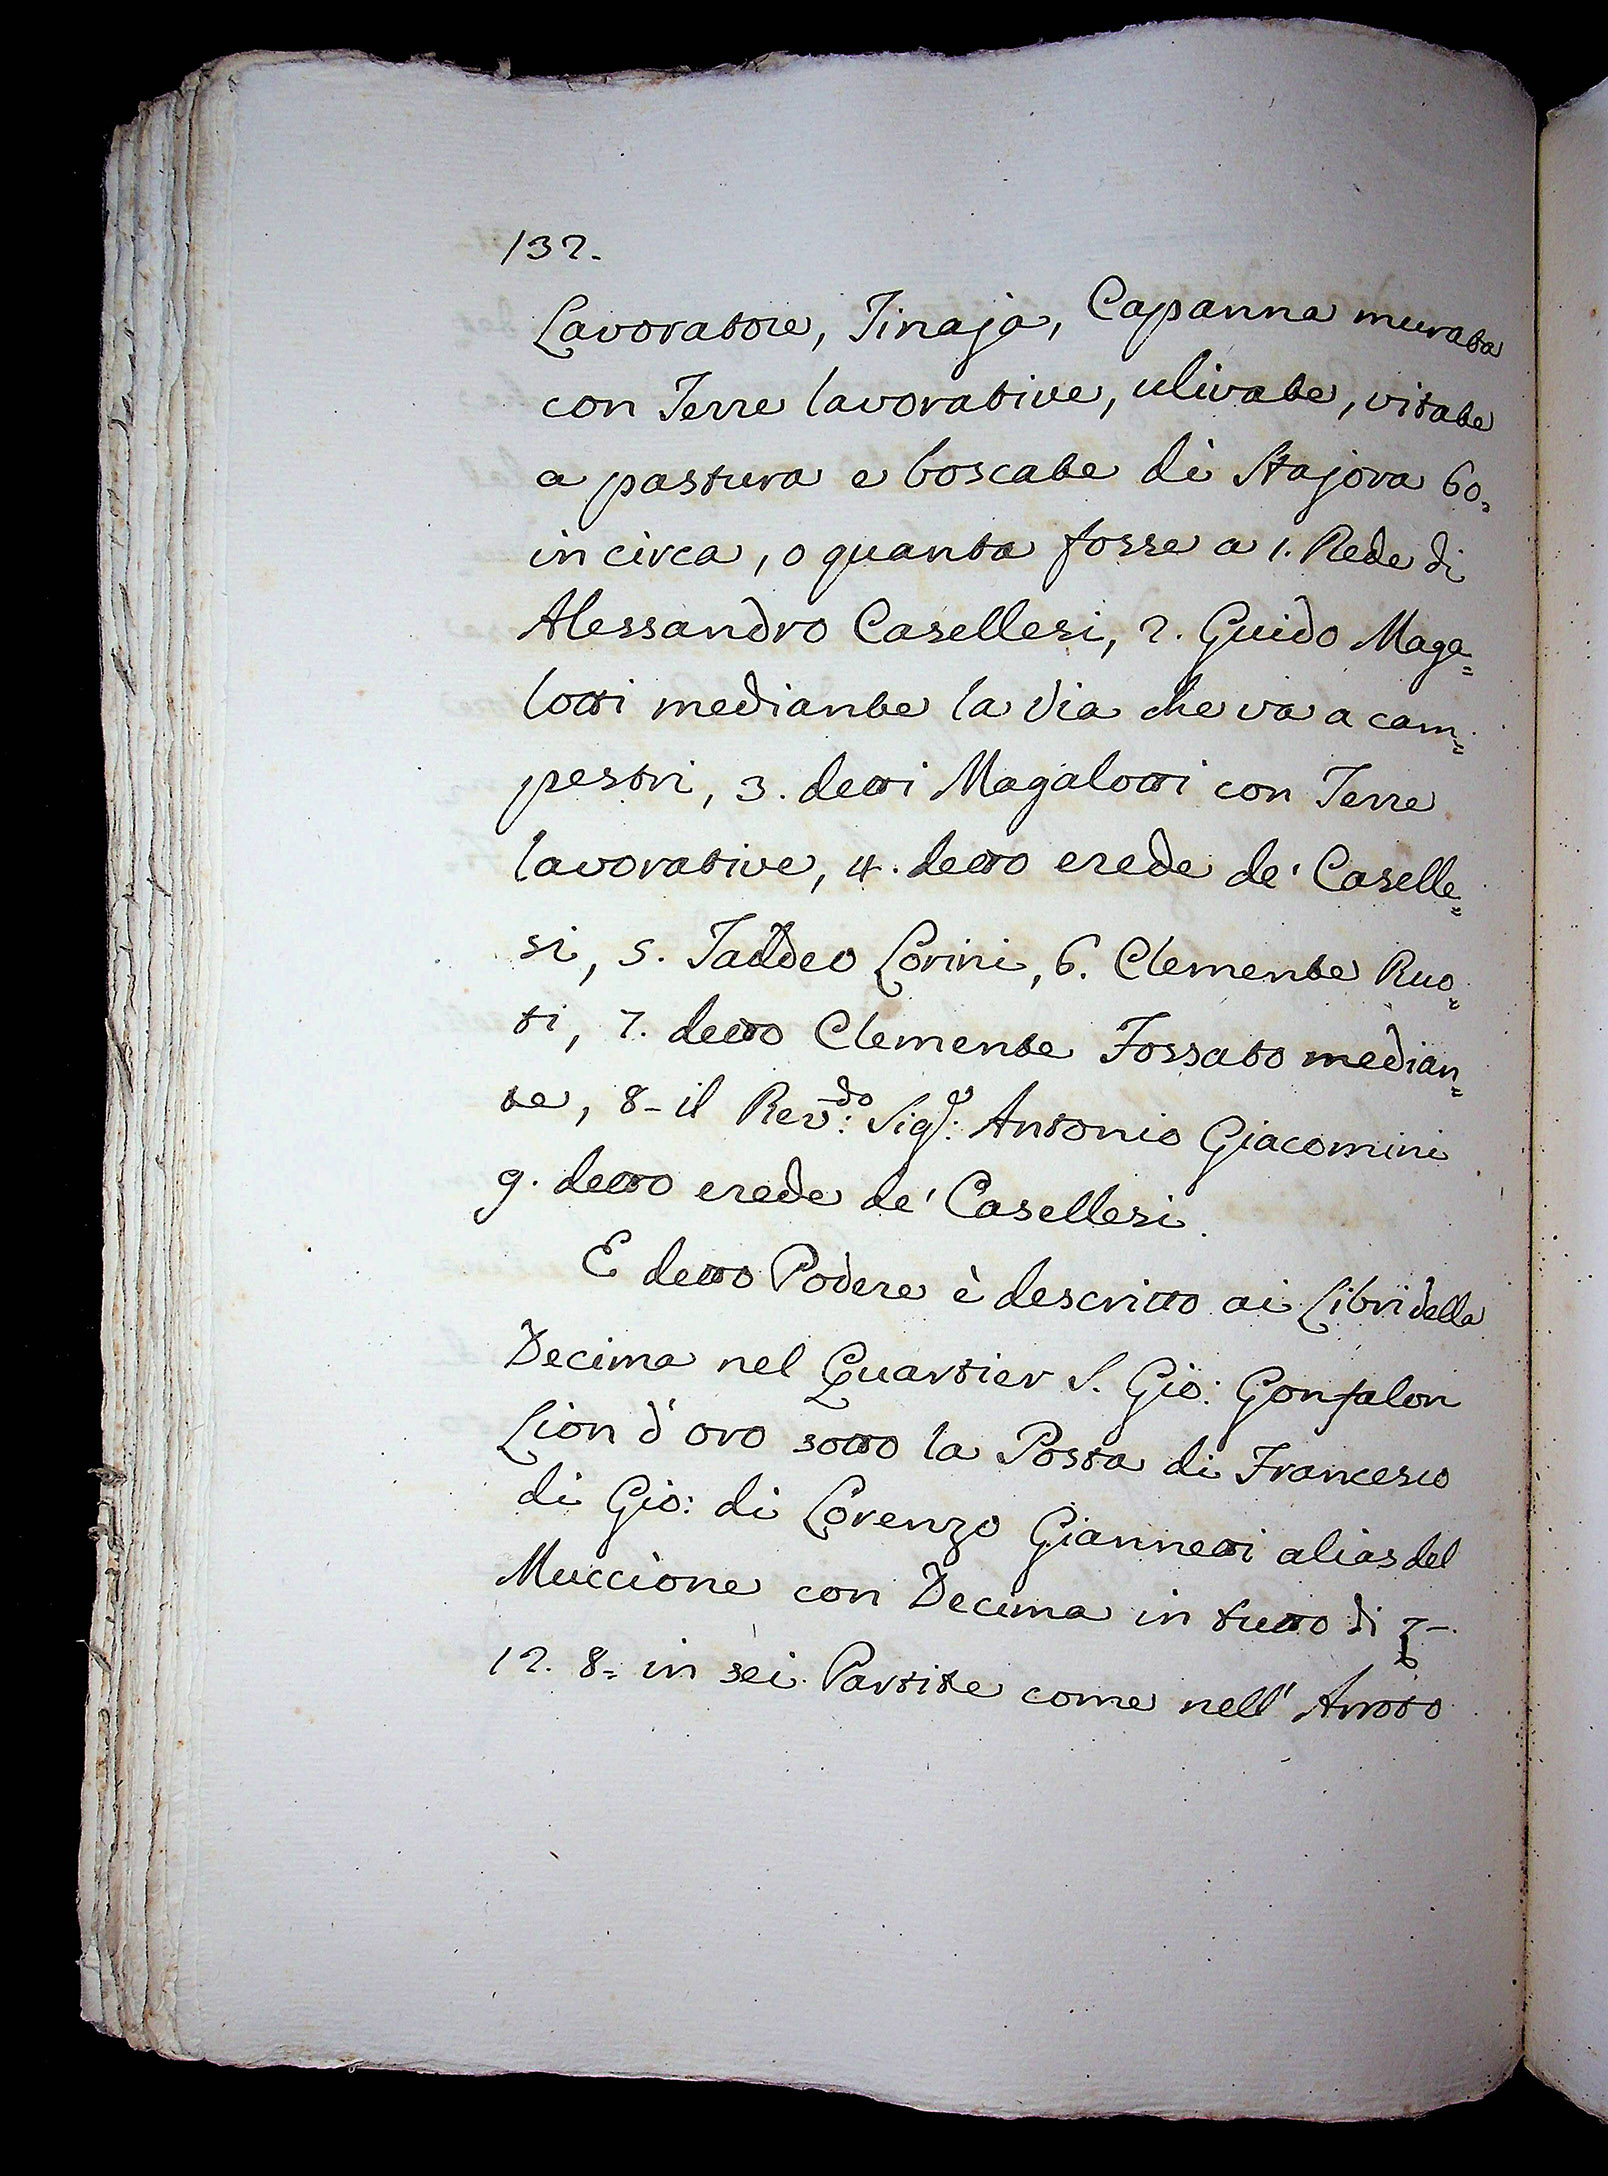 132.
Lavoratore, Tinaja, Capanna murata
con Terre lavorative, ulivate, vitate
a pastura e boscate di Stajora 60=
in circa, o quanta fosse a 1. Rede di
Alessandro Casellesi, 2. Guido Maga=
lotti mediante la Via che va a cam=
pestri, 3. detti Magalotti con Terre
lavorative, 4. detto erede de' Caselle=
si, 5. Taddeo Lorini, 6. Clemente Ruo=
ti, 7. detto Clemente Fossato median=
te, 8- il Rev:do Sig:r Antonio Giacomini
9. detto erede de' Casellesi.
E detto Podere è descritto ai Libri della
Decima nel Quartier S. Gio: Gonfalon
Lion d'oro sotto la Posta di Francesco
di Gio: di Lorenzo Giannetti alias del
Muccione con Decima in tutto di
12. 8= in sei Partite come nell' Arroto